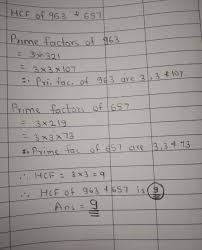 HCF of 963 & 657
Prime factors of 963
= 3×321
= 3×3×107
∴ Pri. fac. of 963 are 3,3 & 107
Prime factors of 657
= 3×219
= 3×3×73
∴ Prime fac. of 657 are 3,3 & 73
∴ HCF = 3×3 = 9
∴ HCF of 963 & 657 is 9
Ans = 9